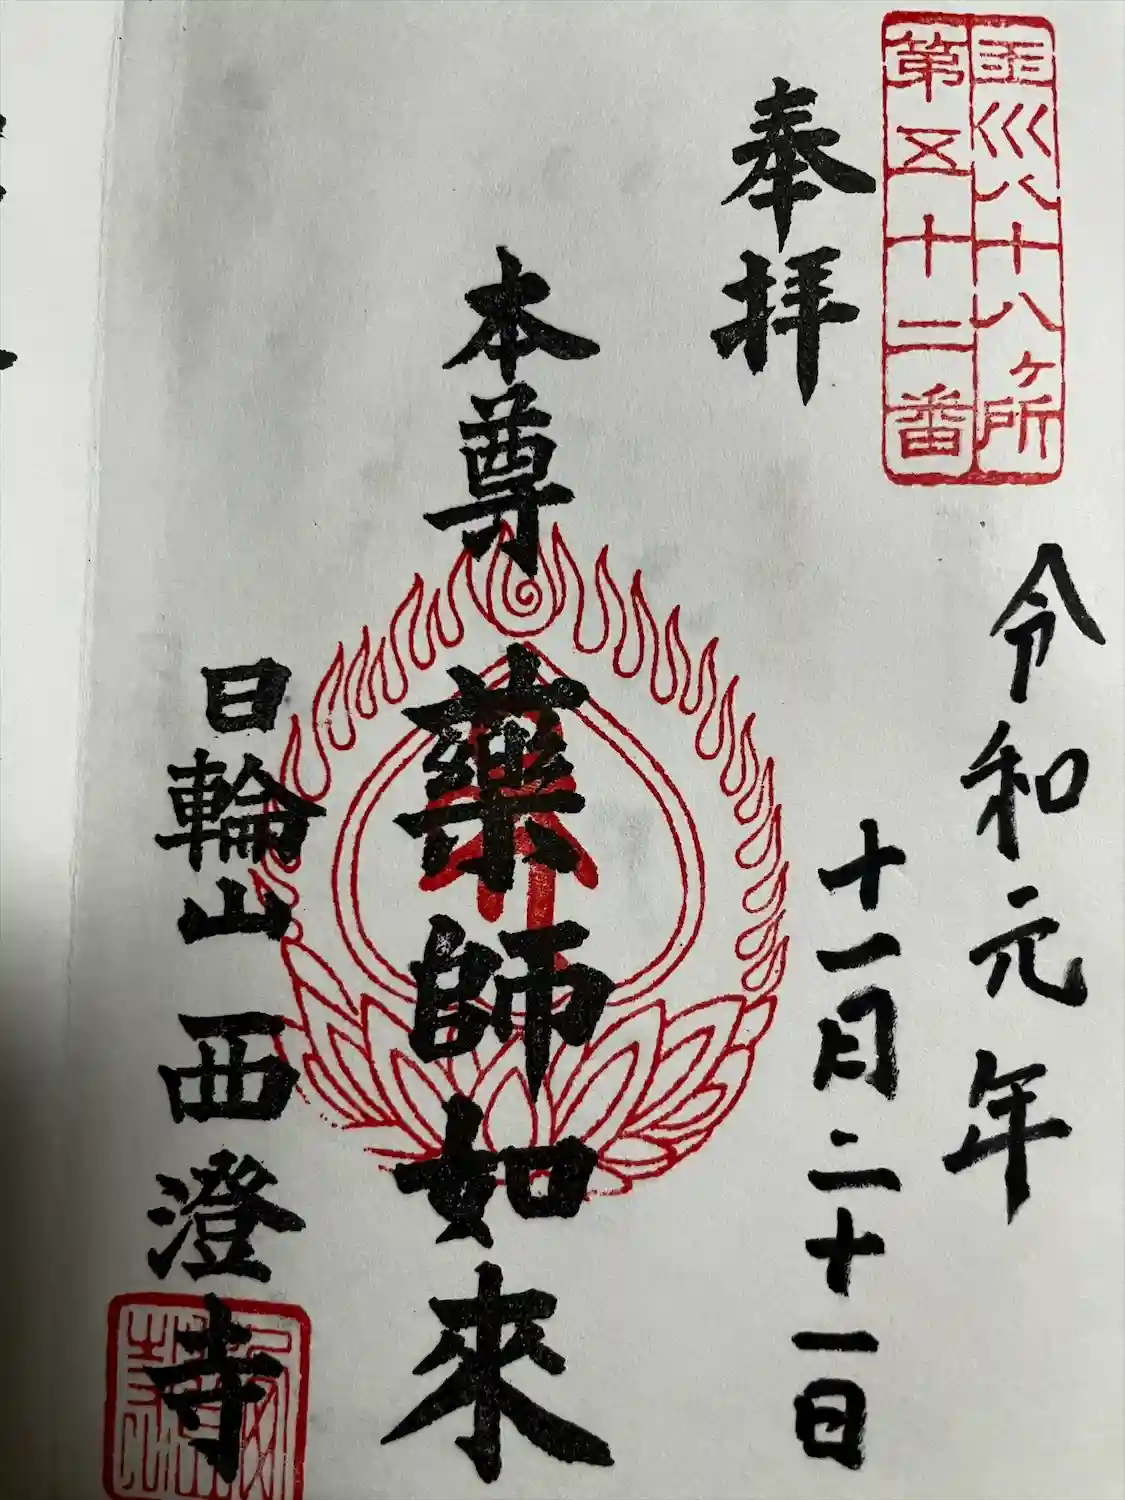 玉川八十八ヶ所
第五十二番
奉拝
令和元年
十一月二十一日
本尊
藥師如來
日輪山 西澄寺